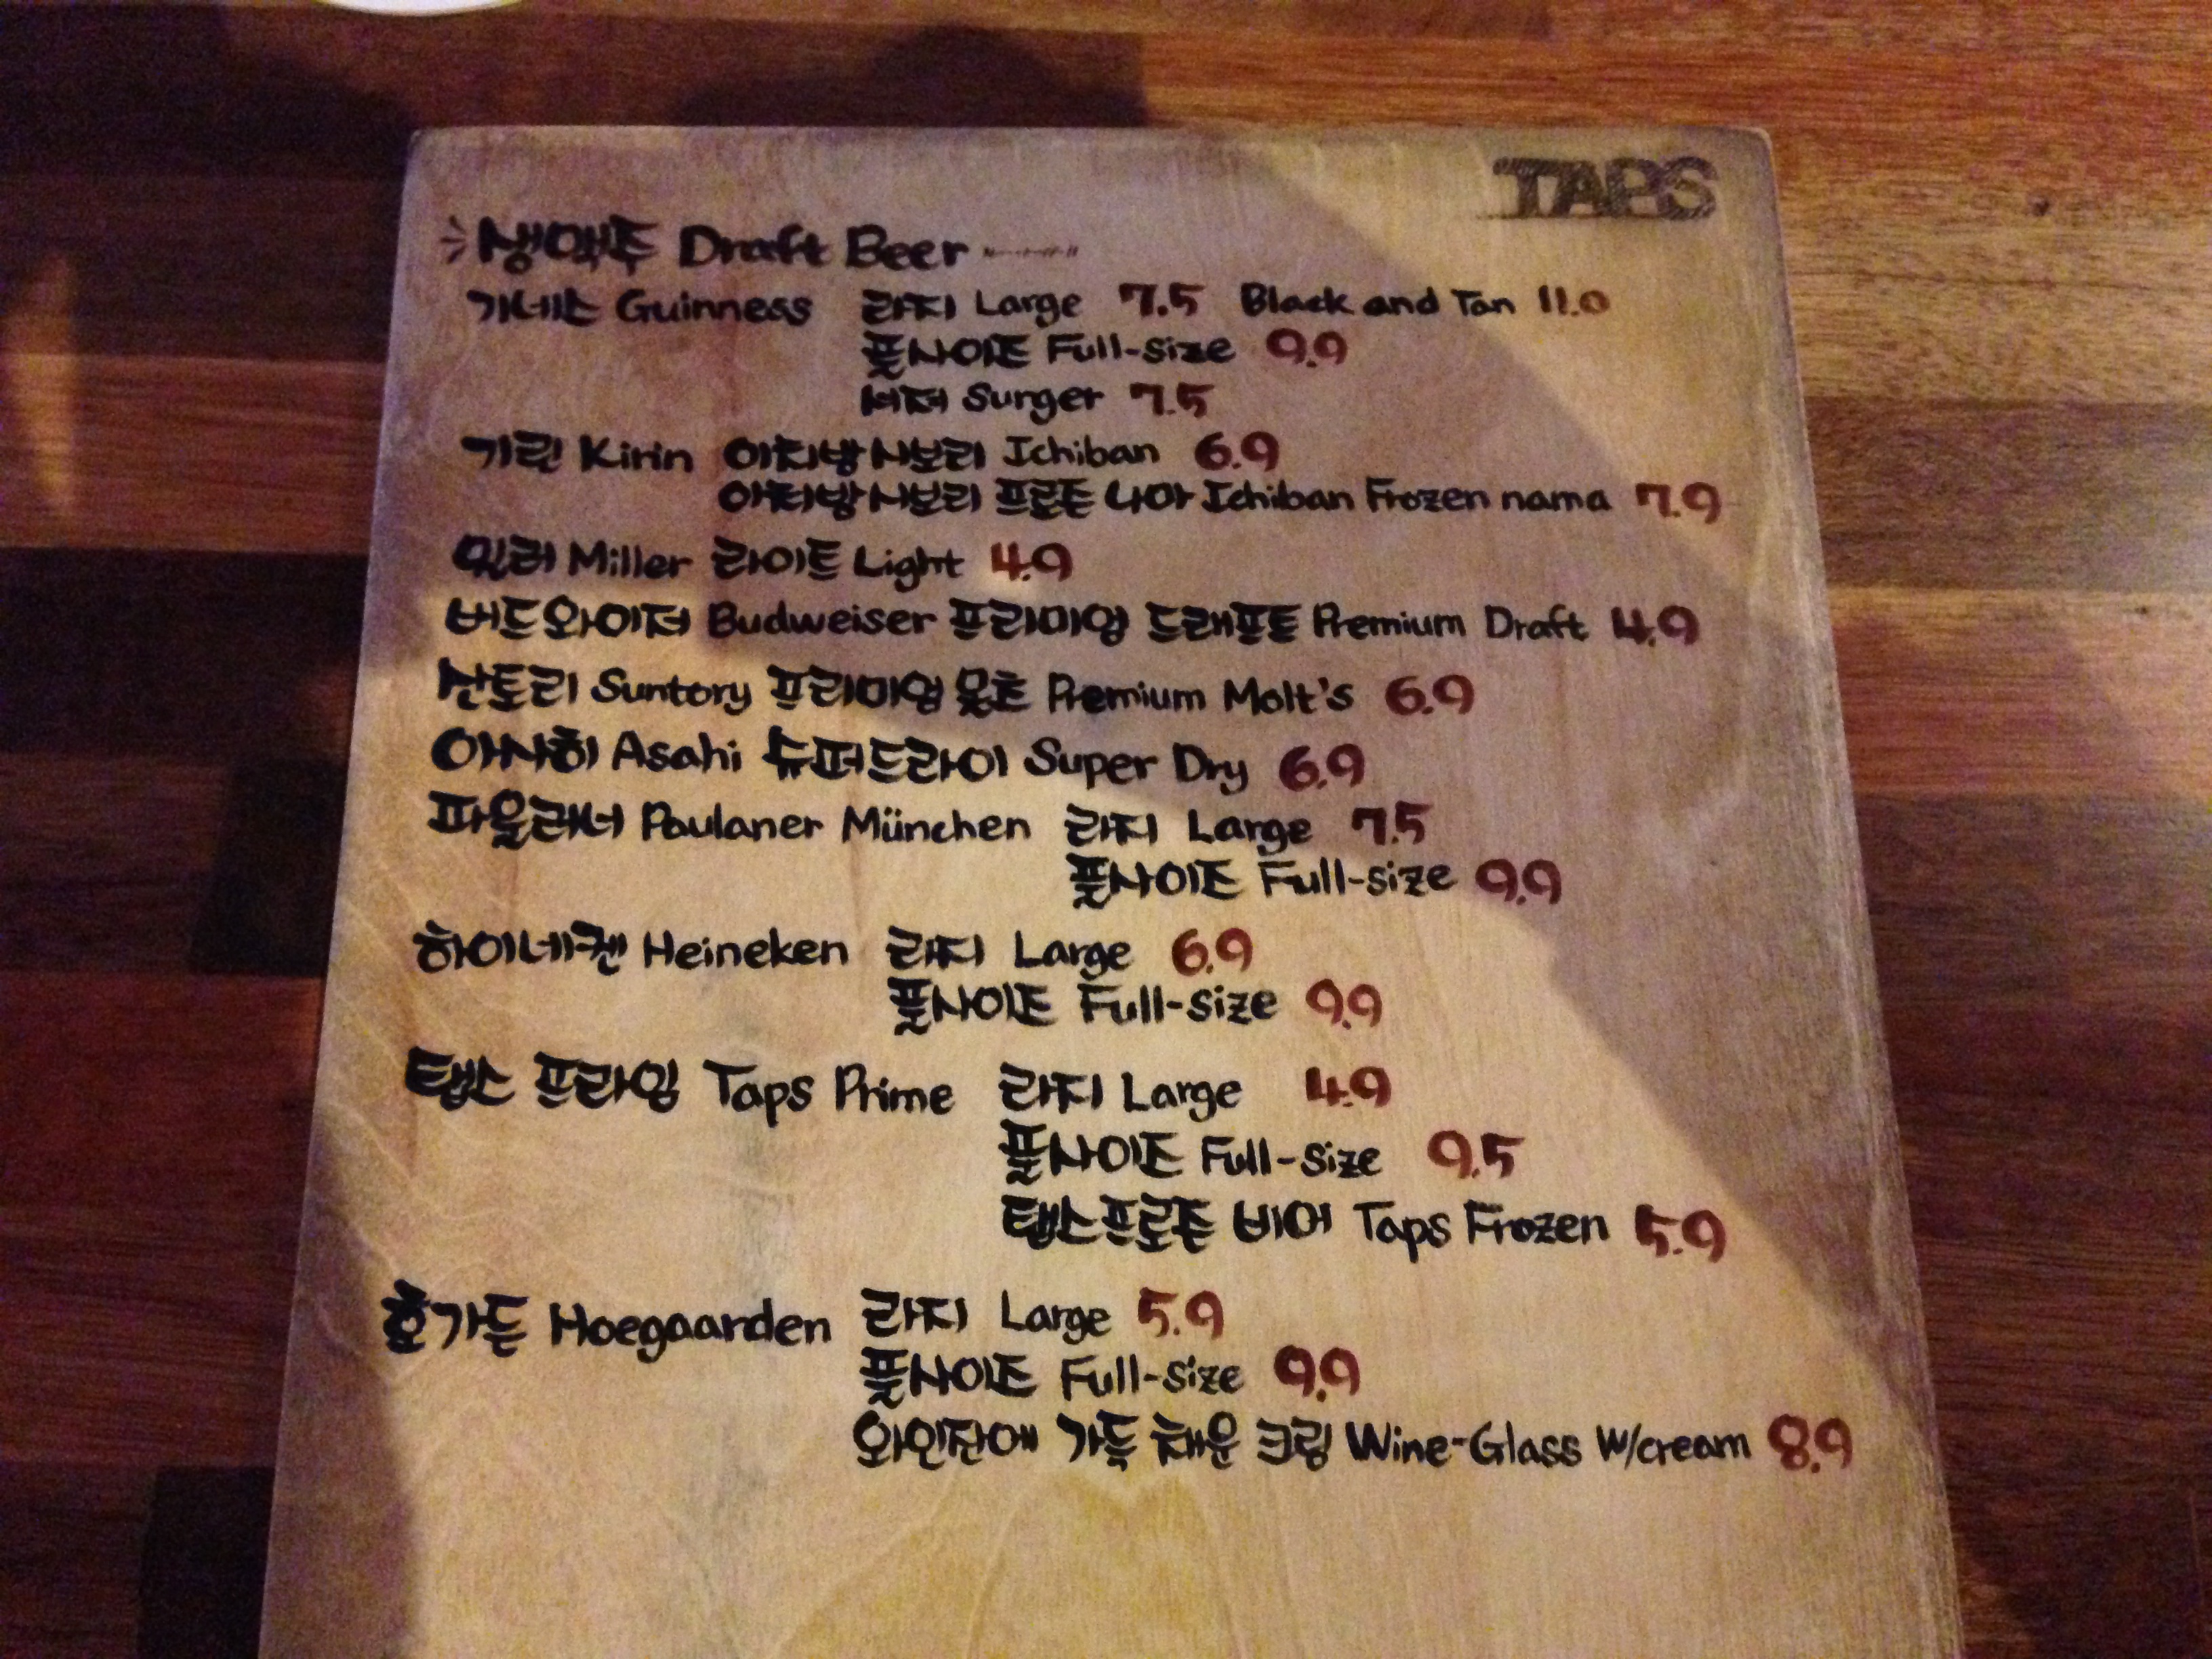 TAPS
생맥주 Draft Beer
기네스 Guinness 라지 Large 7.5 Black and Tan 11.0
풀사이즈 Full-size 9.9
서져 Surger 7.5
기린 Kirin 이치방 시보리 Ichiban 6.9
이치방 시보리 프로즌 나마 Ichiban Frozen nama 7.9
밀러 Miller 라이트 Light 4.9
버드와이저 Budweiser 프리미엄 드래프트 Premium Draft 4.9
산토리 Suntory 프리미엄 몰츠 Premium Molt's 6.9
아사히 Asahi 슈퍼드라이 Super Dry 6.9
파울라너 Paulaner München 라지 Large 7.5
풀사이즈 Full-size 9.9
하이네켄 Heineken 라지 Large 6.9
풀사이즈 Full-size 9.9
탭스 프라임 Taps Prime 라지 Large 4.9
풀사이즈 Full-size 9.5
탭스프로즌 비어 Taps Frozen 5.9
호가든 Hoegaarden 라지 Large 5.9
풀사이즈 Full-size 9.9
와인잔에 가득 채운 크림 Wine-Glass W/cream 8.9